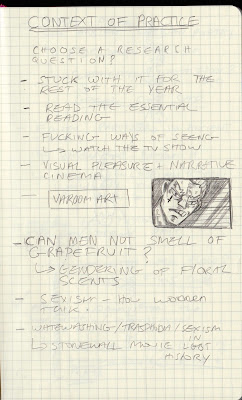 CONTEXT OF PRACTICE
CHOOSE A RESEARCH
QUESTION?
- STUCK WITH IT FOR THE
REST OF THE YEAR
- READ THE ESSENTIAL
READING
- FUCKING WAYS OF SEENG
↳ WATCH THE TV SHOW
- VISUAL PLEASURE + NARRATIVE
CINEMA
- VAROOM ART
- CAN MEN NOT SMELL OF
GRAPEFRUIT?
↳ GENDERING OF FLORAL
SCENTS
- SEXISM - HOW WOMEN
TALK.
- WHITEWASHING/TRANSPHOBIA/SEXISM
↳ STONEWALL MOVIE IN LGBT
HISTORY